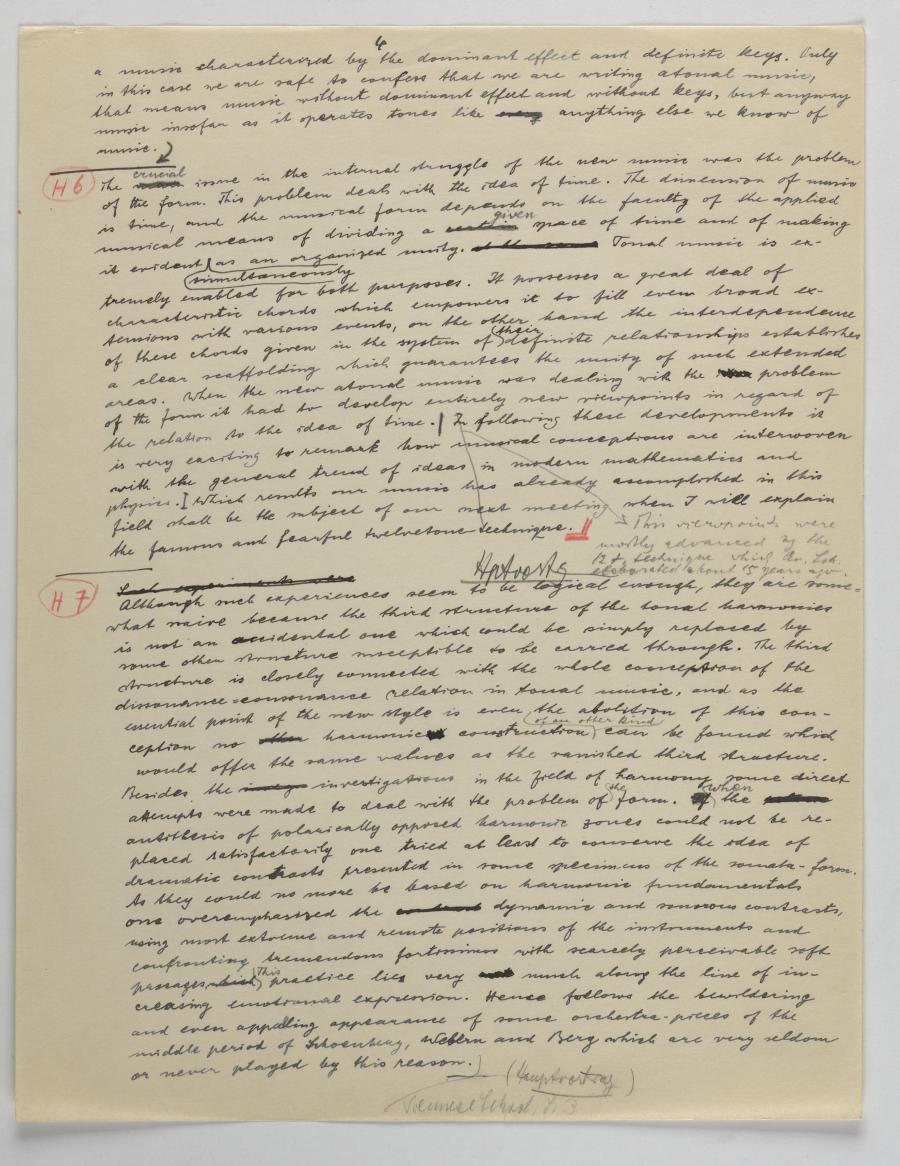 4
a music characterized by the dominant effect and definite keys. Only
in this case we are safe to confess that we are writing atonal music,
that means music without dominant effect and without keys, but anyway
music insofar as it operates tones like anything else we know of
music.)
H 6
crucial
The issue in the internal struggle of the new music was the problem
of the form. This problem deals with the idea of time. The dimension of music
is time, and the musical form depends on the faculty of the applied
given
musical means of dividing a space of time and of making
it evident as an organized unity. Tonal music is ex-
simultaneously
tremely enabled for both purposes. It possesses a great deal of
characteristic chords which empowers it to fill even broad ex-
tensions with various events, on the other hand the interdependence
their
of these chords given in the system of definite relationships establishes
a clear scaffolding which guarantees the unity of such extended
areas. When the new atonal music was dealing with the problem
of the form it had to develop entirely new viewpoints in regard of
the relation to the idea of time. | In following these developments it
is very exciting to remark how musical conceptions are interwoven
with the general trend of ideas in modern mathematics and
physics. Which results our music has already accomplished in this
field shall be the subject of our next meeting when I will explain
the famous and fearful twelvetone technique.
This viewpoints were
mostly advanced by the
12 t. technique which
elaborated about 15 years ago.
Hptvortg
H 7
Such experiments were
Although such experiences seem to be logical enough, they are some-
what naive because the third structure of the tonal harmonies
is not an accidental one which could be simply replaced by
some other structure susceptible to be carried through. The third
structure is closely connected with the whole conception of the
dissonance-consonance relation in tonal music, and as the
essential point of the new style is even the abolition of this con-
of an other kind
ception no harmonic construction can be found which
would offer the same values as the vanished third structure.
Besides the investigations in the field of harmony some direct
the when
attempts were made to deal with the problem of form. the
antithesis of polarically opposed harmonic zones could not be re-
placed satisfactorily one tried at least to conserve the idea of
dramatic contrasts presented in some specimens of the sonata-form.
As they could no more be based on harmonic fundamentals
one overemphasized the dynamic and sonorous contrasts,
using most extreme and remote positions of the instruments and
confronting tremendous fortissimos with scarcely perceivable soft
This
passages, which practice lies very much along the line of in-
creasing emotional expression. Hence follows the bewildering
and even appalling appearance of some orchestra-pieces of the
middle period of Schoenberg, Webern and Berg which are very seldom
or never played by this reason.)
(Hauptvortrag)
Viennese School,